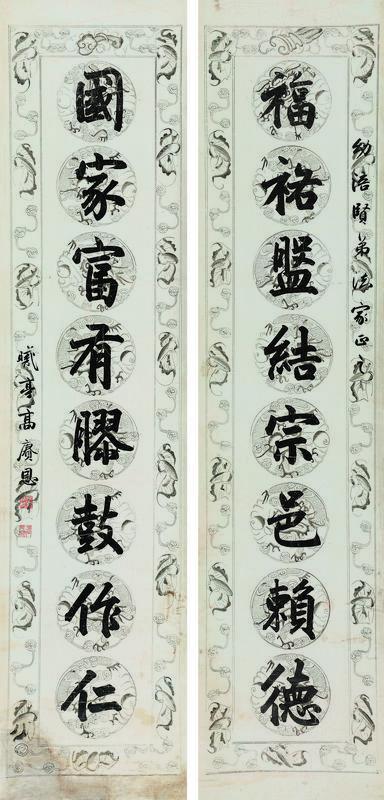 幼涪賢弟法家正之
福祐盤結宗邑賴德
國家富有膠鼓作仁
曦亭高賡恩